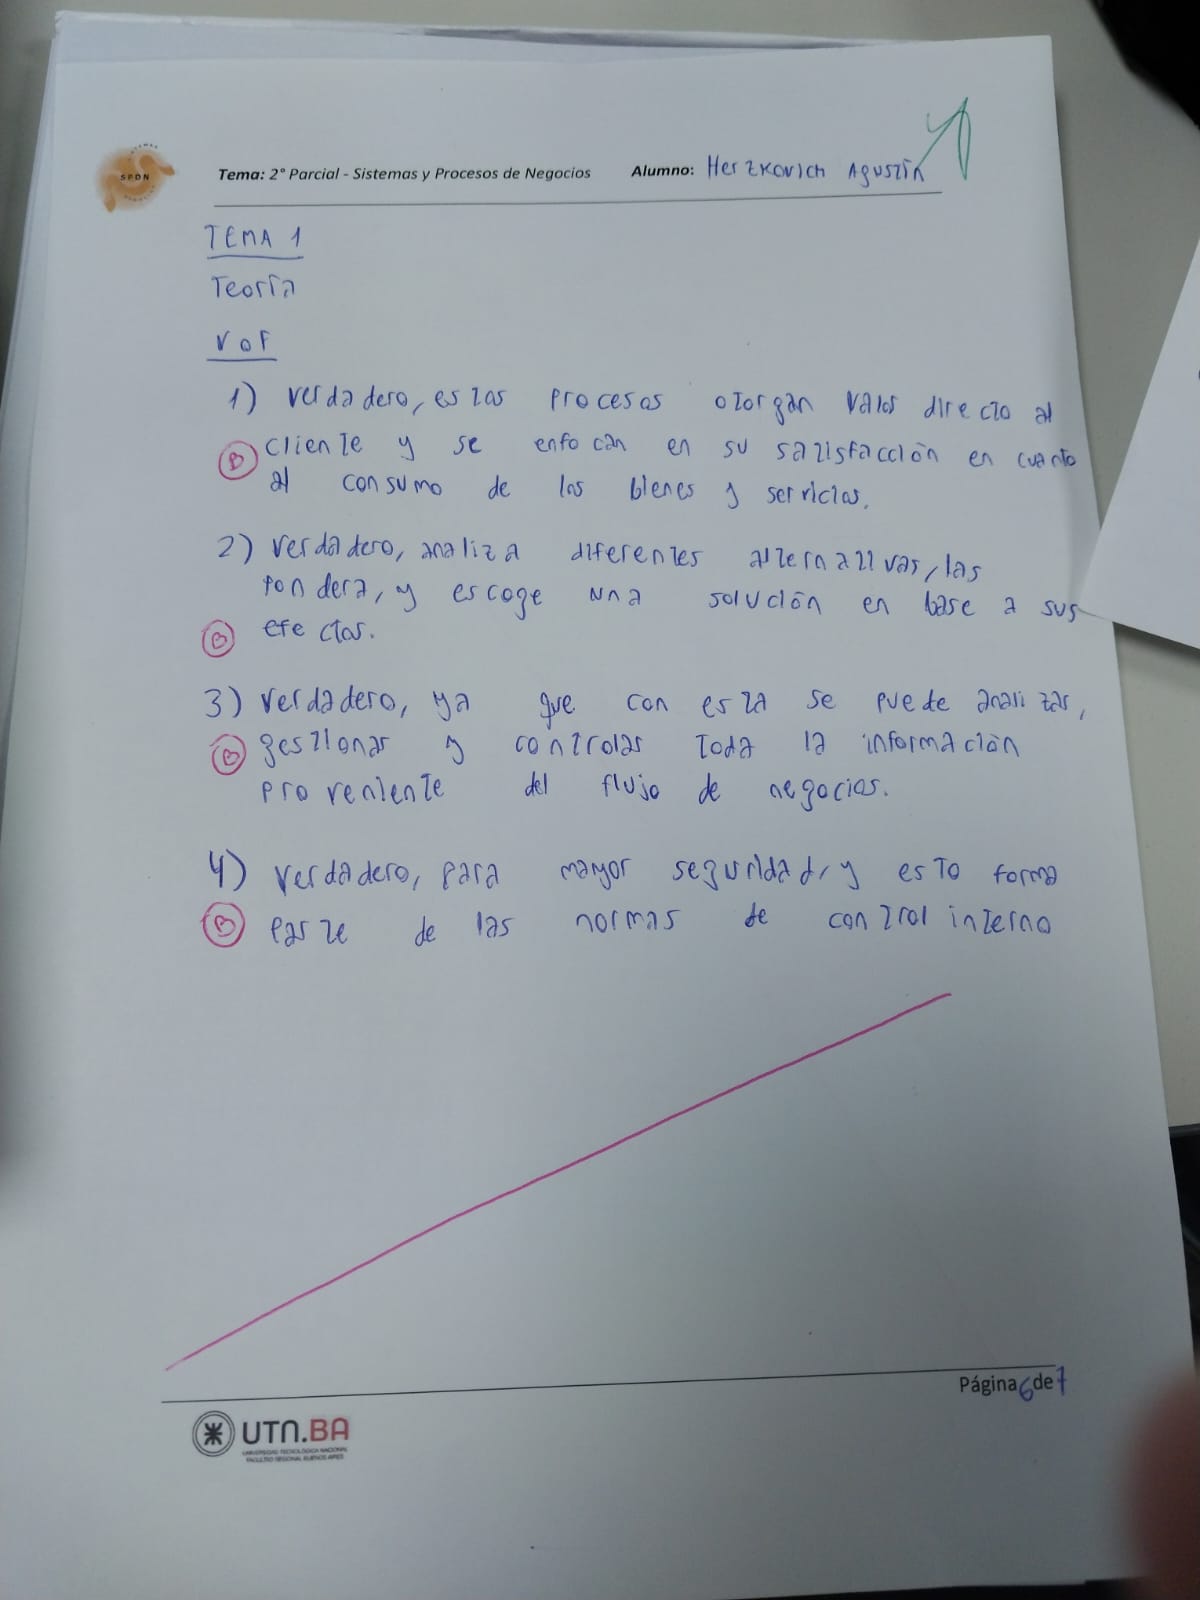 SISTEMAS
SPDN
NEGOCIOS
Tema: 2° Parcial - Sistemas y Procesos de Negocios Alumno: Herzkovich Agustín
TEMA 1
Teoría
V o F
1) Verdadero, estos procesos otorgan valor directo al
B cliente y se enfocan en su satisfacción en cuanto
al consumo de los bienes y servicios.
2) Verdadero, analiza diferentes alternativas, las
pondera, y escoge una solución en base a sus
B efectos.
3) Verdadero, ya que con esta se puede analizar,
B gestionar y controlar toda la información
proveniente del flujo de negocios.
4) Verdadero, para mayor seguridad, y esto forma
B parte de las normas de control interno
Página 6 de 7
UTN.BA
UNIVERSIDAD TECNOLÓGICA NACIONAL
FACULTAD REGIONAL BUENOS AIRES